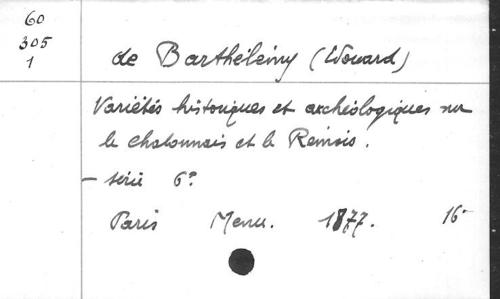 60
305
1
de Barthélémy (Edouard)
Variétés historiques et archéologiques sur
le chalonnais et le Remois.
- série 6°
Paris Menu. 1877. 16°